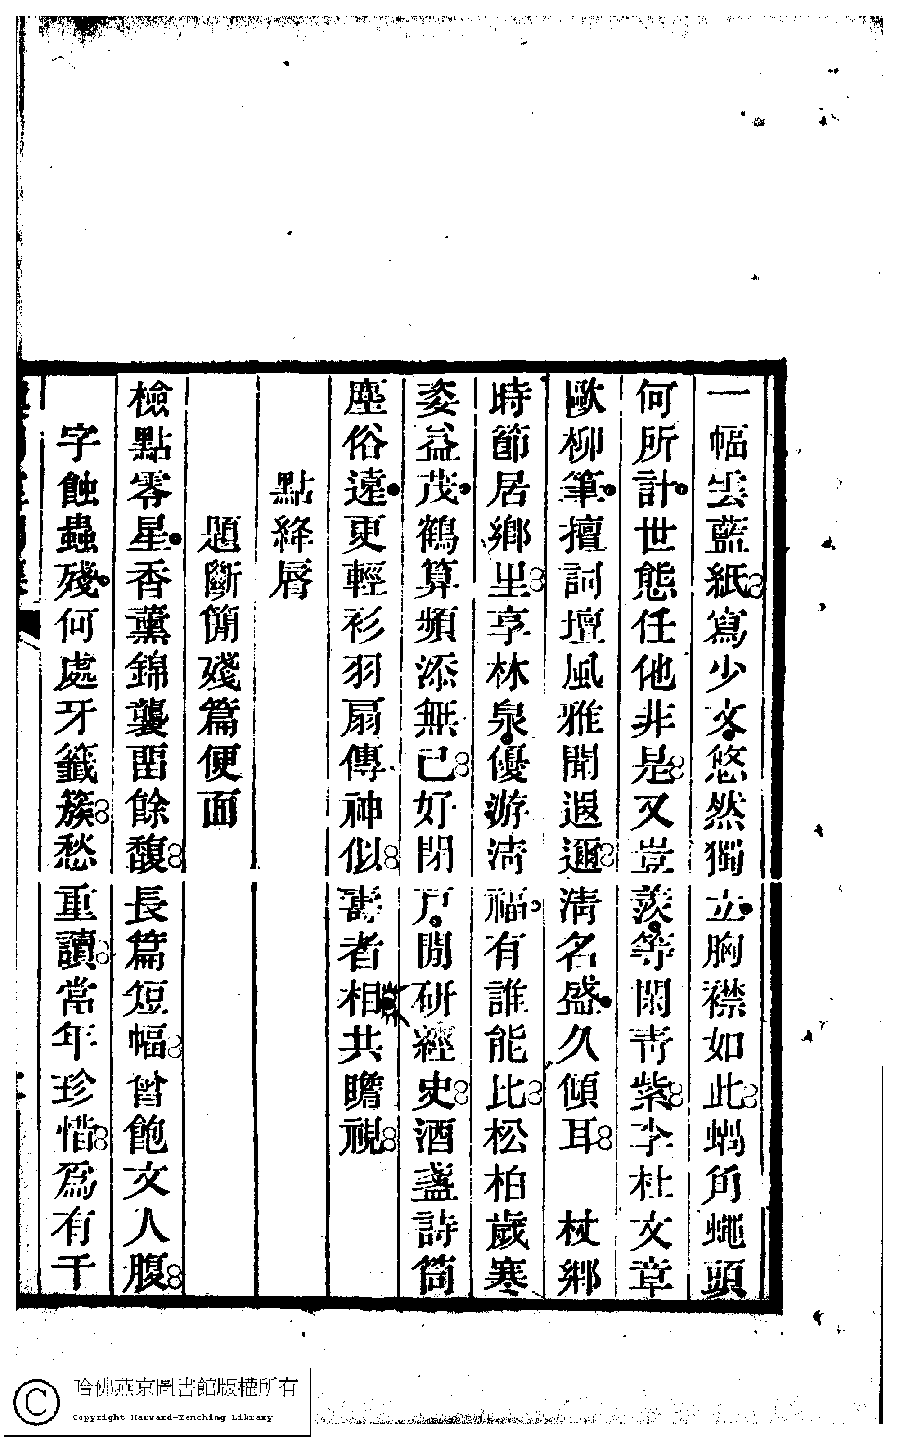 一幅雲藍紙寫少文悠然獨立胸襟如此蝸角蠅頭
何所計世態任他非是又豈羨等閑靑紫李杜文章
歐柳筆擅詞壇風雅聞遐邇淸名盛久傾耳　杖鄉
時節居鄉里享林泉優游淸福有誰能比松柏歲寒
姿益茂鶴算頻添無已好閉戶閒研經史酒盞詩筒
塵俗遠更輕衫羽扇傳神似壽者相共瞻視
點絳唇
題斷簡殘篇便面
檢點零星香薰錦襲畱餘馥長篇短幅曾飽文人腹
字蝕蟲殘何處牙籤簇愁重讀常年珍惜爲有千
哈佛燕京圖書館版權所有
Copyright Harvard-Yenching Library